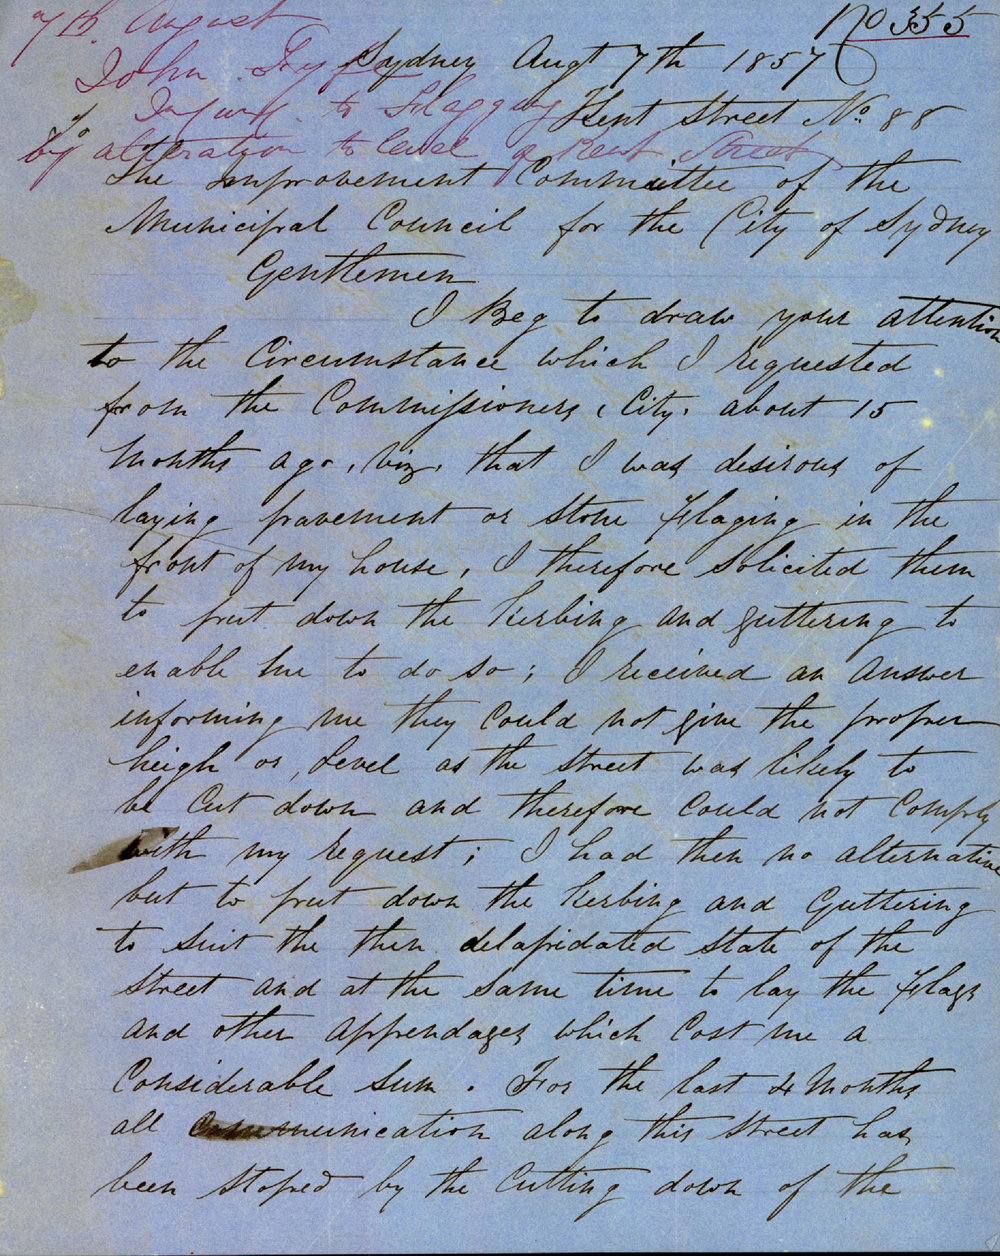 7th. August
No 355
John Fyfe
Sydney Augt 7th 1857
Injury to Flagging
Kent Street No. 88
by alteration to level of Kent Street
The Improvement Committee of the
Municipal Council for the City of Sydney
Gentlemen
I Beg to draw your attention
to the Circumstance which I requested
from the Commissioners, City, about 15
Months ago, viz, that I was desirous of
laying pavement or Stone Flaging in the
front of my house, I therefore Solicited them
to put down the Kerbing and guttering to
enable me to do so; I received an Answer
informing me they Could not give the proper
heigh or, Level as the Street was likely to
be Cut down and therefore Could not Comply
with my request; I had then no alternative
but to put down the Kerbing and Guttering
to Suit the then delapidated State of the
Street and at the Same time to lay the Flags
and other Appendages which Cost me a
Considerable Sum. For the last 4 Months
all Communication along this Street has
been Stoped by the Cutting down of the